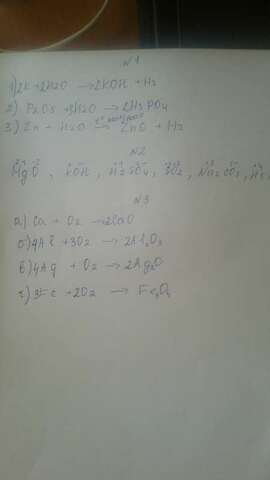 N1
1) 2K + 2H2O → 2KOH + H2
2) P2O5 + 3H2O → 2H3PO4
3) Zn + H2O → ZnO + H2
N2
MgO, KOH, H2SO4, SO2, Na2CO3,
N3
а) Ca + O2 → 2CaO
б) 4Al + 3O2 → 2Al2O3
в) 4Ag + O2 → 2Ag2O
г) 3Fe + 2O2 → Fe3O4